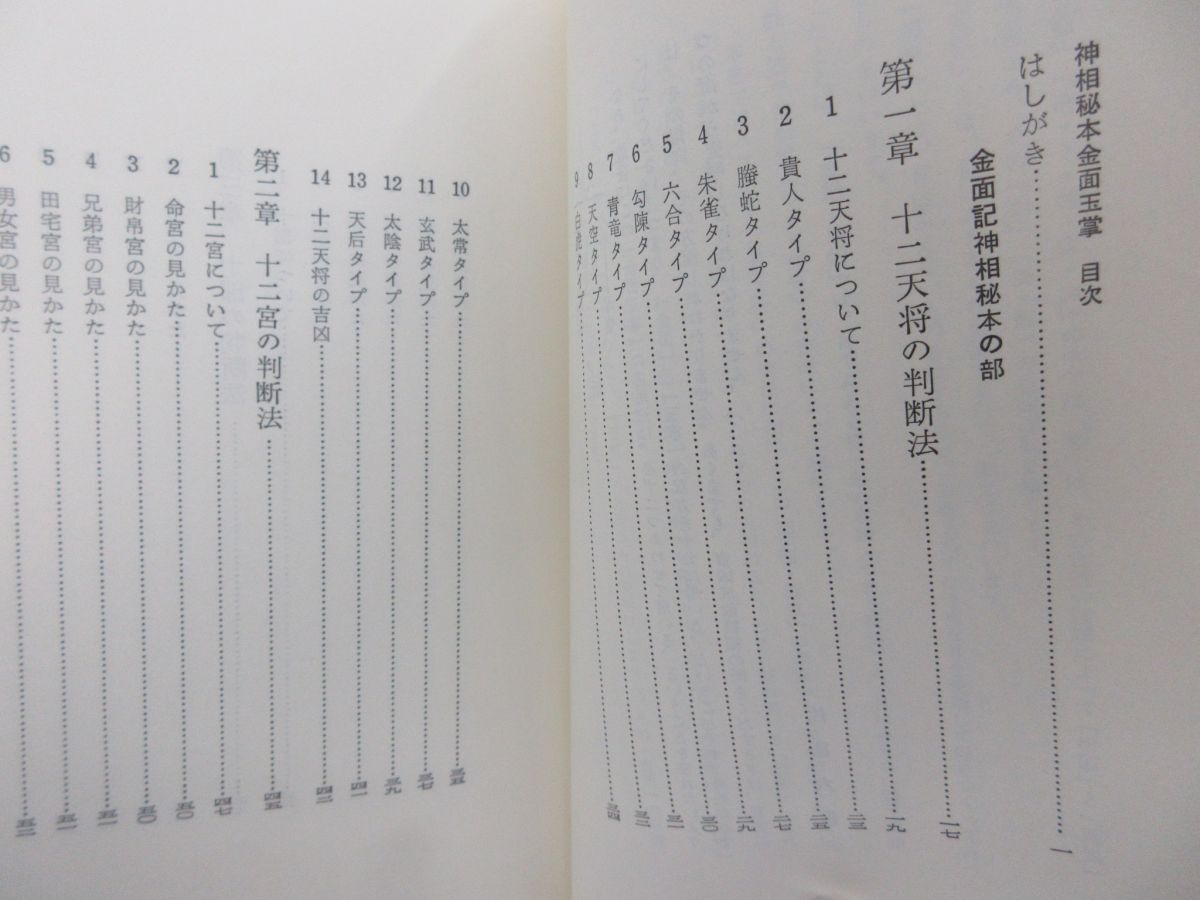 神相秘本金面玉掌 目次
はしがき……………一
金面記神相秘本の部
第一章 十二天将の判断法……………一七
1 十二天将について……………一九
2 貴人タイプ……………二三
3 螣蛇タイプ……………二五
4 朱雀タイプ……………二七
5 六合タイプ……………二九
6 勾陳タイプ……………三〇
7 青竜タイプ……………三一
8 天空タイプ……………三二
9 白虎タイプ……………三四
10 太常タイプ……………三五
11 玄武タイプ……………三七
12 太陰タイプ……………三九
13 天后タイプ……………四一
14 十二天将の吉凶……………四二
第二章 十二宮の判断法……………四五
1 十二宮について……………四七
2 命宮の見かた……………五〇
3 財帛宮の見かた……………五〇
4 兄弟宮の見かた……………五一
5 田宅宮の見かた……………五一
6 男女宮の見かた……………五二